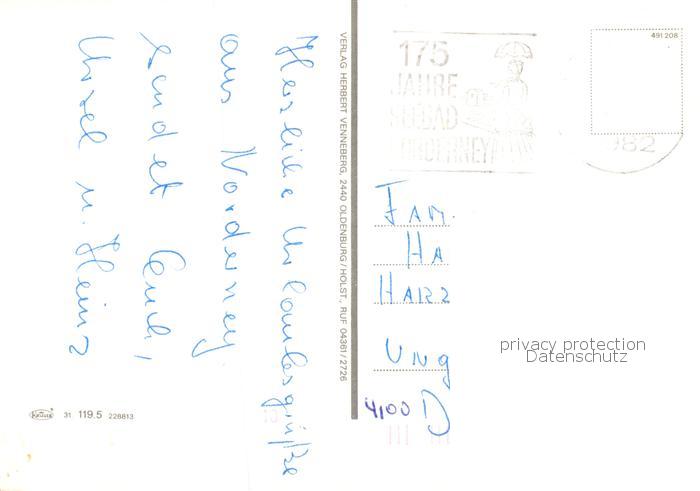 Herzliche Urlaubsgrüße
aus Norderney
sendet Euch,
Ursel u. Heinz
VERLAG HERBERT VENNEBERG, 2440 OLDENBURG/HOLST., RUF 04361/2726
KRÜGER 31 119.5 228813
175
JAHRE
SEEBAD
NORDERNEY
491 208
982
FAM.
HA
HARZ
UNG
4100 D
privacy protection
Datenschutz